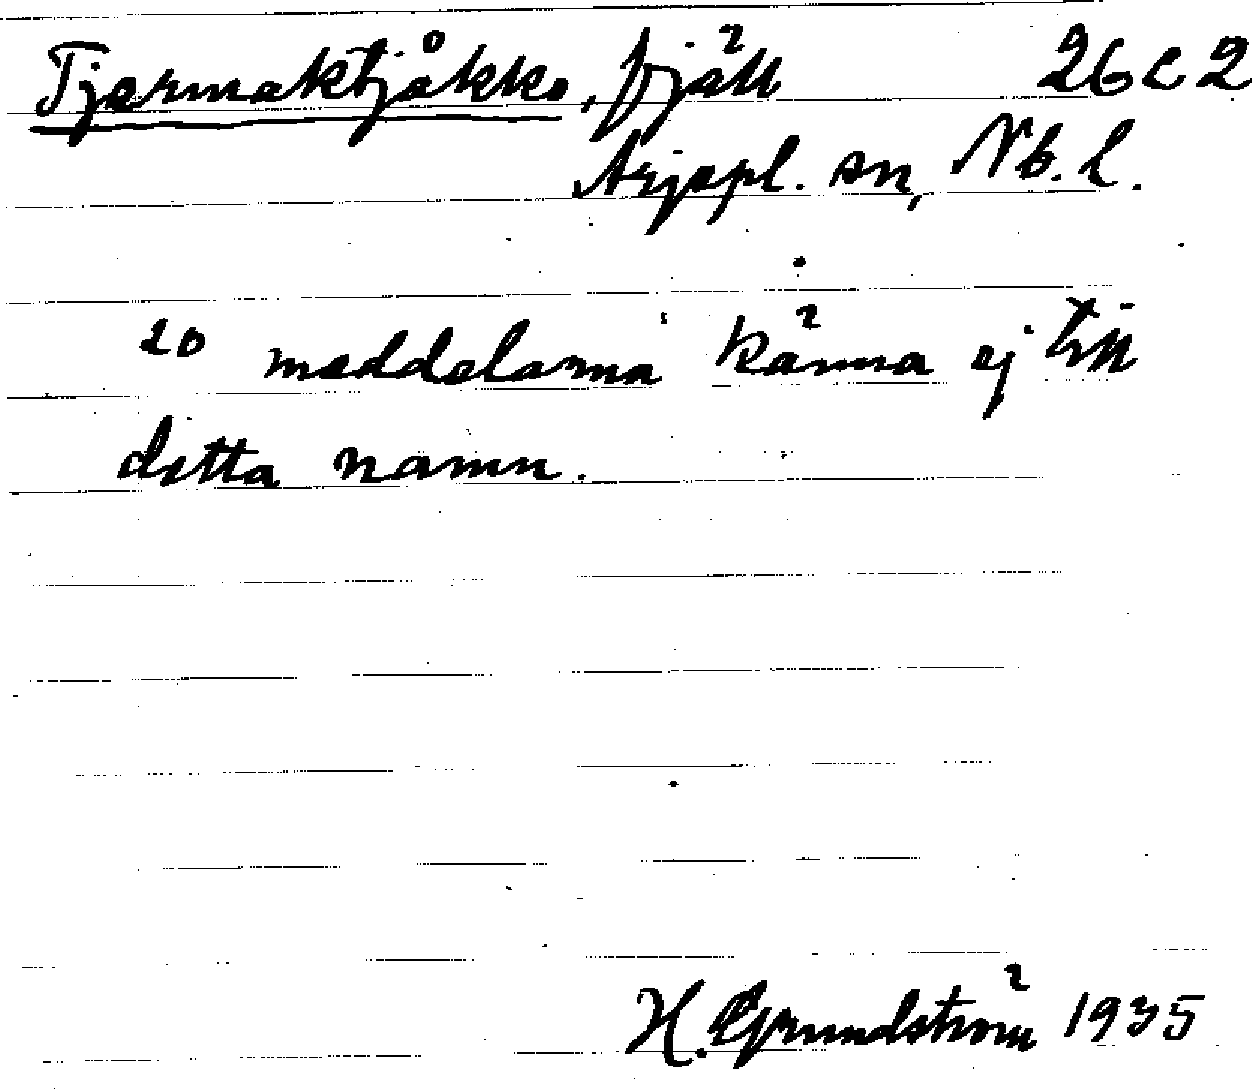 Tjærmaktjåkko, fjäll 26 c 2
Arjepl. sn, Nb. l.
20 meddelarna känna ej till
detta namn.
H. Grundström 1935